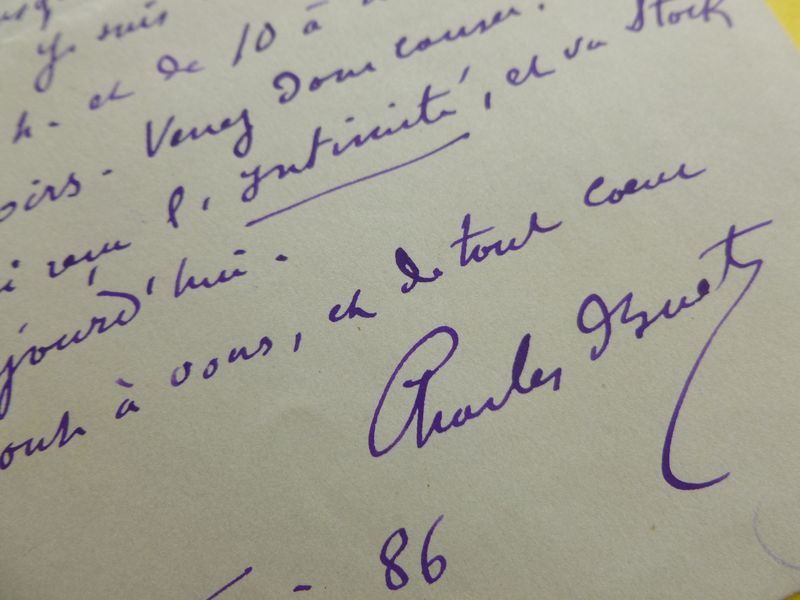 je suis
h. et de 10 à
soirs. Venez donc causer.
ai reçu l'Intimité, et vu Stock
jourd'hui.
tout à vous, et de tout coeur
Charles Buet
- 86